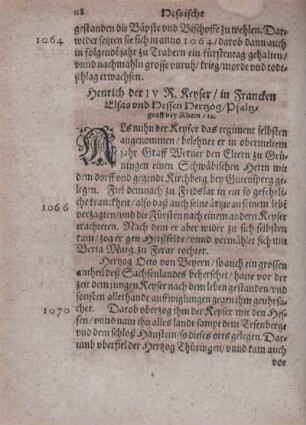 118 Hessische
gestanden die Bäpste und Bischoffe zu wehlen. Dar-
1064 wider setzten sie sich im anno 1064/ darob dann auch
in folgendẽ jahr zu Trabern ein fürstentag gehalten/
unnd nachmahln grosse unruh/ krieg/ mordt und todt-
schlag erwachsen.
Henrich der IV R. Keyser/ in Francken
Elsas vnd Hessen Hertzog/ Pfaltz-
graff bey Rhein/ ꝛc.
ALs nuhn der Keyser das regiment selbsten
angenommen/ belehnet er in obermeltem
jahr Graff Werner den Eltern zu Grü-
ningen einen Schwäbischen Hern mit
dem dorff und gegende Kirchberg bey Gutensperg ge-
legen. Fiel demnach zu Fridslar in ein so gefehrli-
che kranckheit/ also daß auch seine ärtzte an seinem lebẽ
1066 verzagten/ und die Fürsten nach einem andern Keyser
trachteten. Nach dem er aber wider zu sich selbsten
kam/ zog er gen Herßfeldt/ unnd vermählet sich mit
Berta Marg. zu Ferar tochter.
Hertzog Otto von Beyern/ so auch ein grossen
antheil deß Sachsenlandes beherschet/ hatte vor der
zeit dem jungen Keyser nach dem leben gestanden/ und
sonsten allerhandt auffwiglungen gegen ihm geuhrsa-
1070 chet. Darob uberzog ihm der Keyser mit den Hes-
sen/ unnd nam ihn alles landt sampt dem Tesenberge
und dem schloß Hanstein/ so dieses orts gelegen. Dar-
umb uberfiel der Hertzog Thüringen/ und kam auch
vor